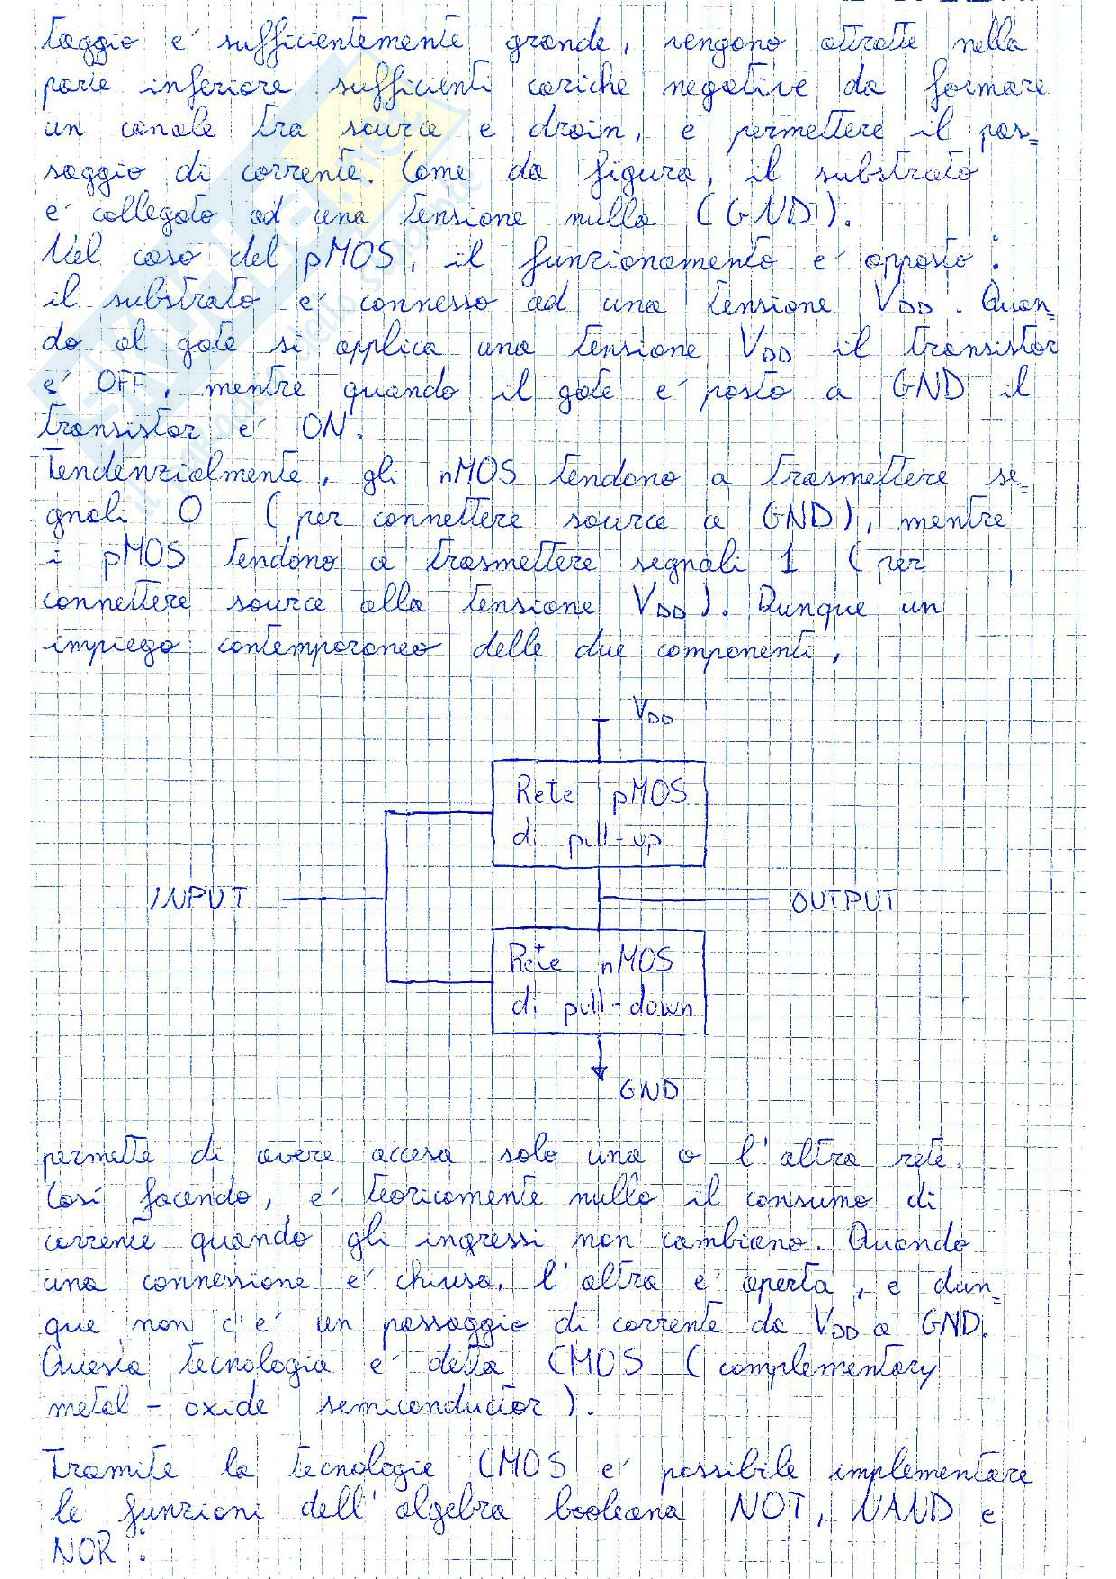 taggio e' sufficientemente grande, vengono attratte nella
parte inferiore sufficienti cariche negative da formare
un canale tra source e drain, e permettere il pas-
saggio di corrente. Come da figura, il substrato
e' collegato ad una tensione nulla (GND).
Nel caso del pMOS, il funzionamento e' opposto:
il substrato e' connesso ad una tensione VDD. Quan-
do al gate si applica una tensione VDD il transistor
e' OFF, mentre quando il gate e' posto a GND il
transistor e' ON.
Tendenzialmente, gli nMOS tendono a trasmettere se-
gnali 0 (per connettere source a GND), mentre
i pMOS tendono a trasmettere segnali 1 (per
connettere source alla tensione VDD). Dunque un
impiego contemporaneo delle due componenti,
VDD
Rete pMOS
di pull-up
INPUT
OUTPUT
Rete nMOS
di pull-down
GND
permette di avere accesa solo una o l'altra rete.
Cosí facendo, e' teoricamente nullo il consumo di
corrente quando gli ingressi non cambiano. Quando
una connessione e' chiusa, l'altra e' aperta, e dun-
que non c'e' un passaggio di corrente da VDD a GND.
Questa tecnologia e' detta CMOS (complementary
metal-oxide semiconductor).
Tramite la tecnologie CMOS e' possibile implementare
le funzioni dell'algebra booleana NOT, NAND e
NOR: